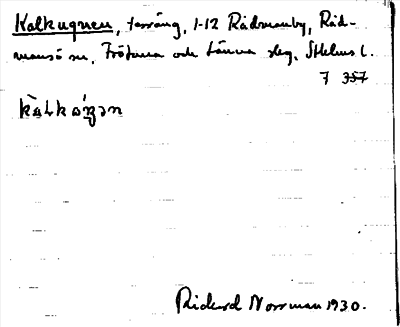 Kalkugnen, terräng, 1-12 Rådmanby, Råd-
mansö sn, Frötuna och Länna slg, Sthlms l.
7 357
Rickard Norrman 1930.